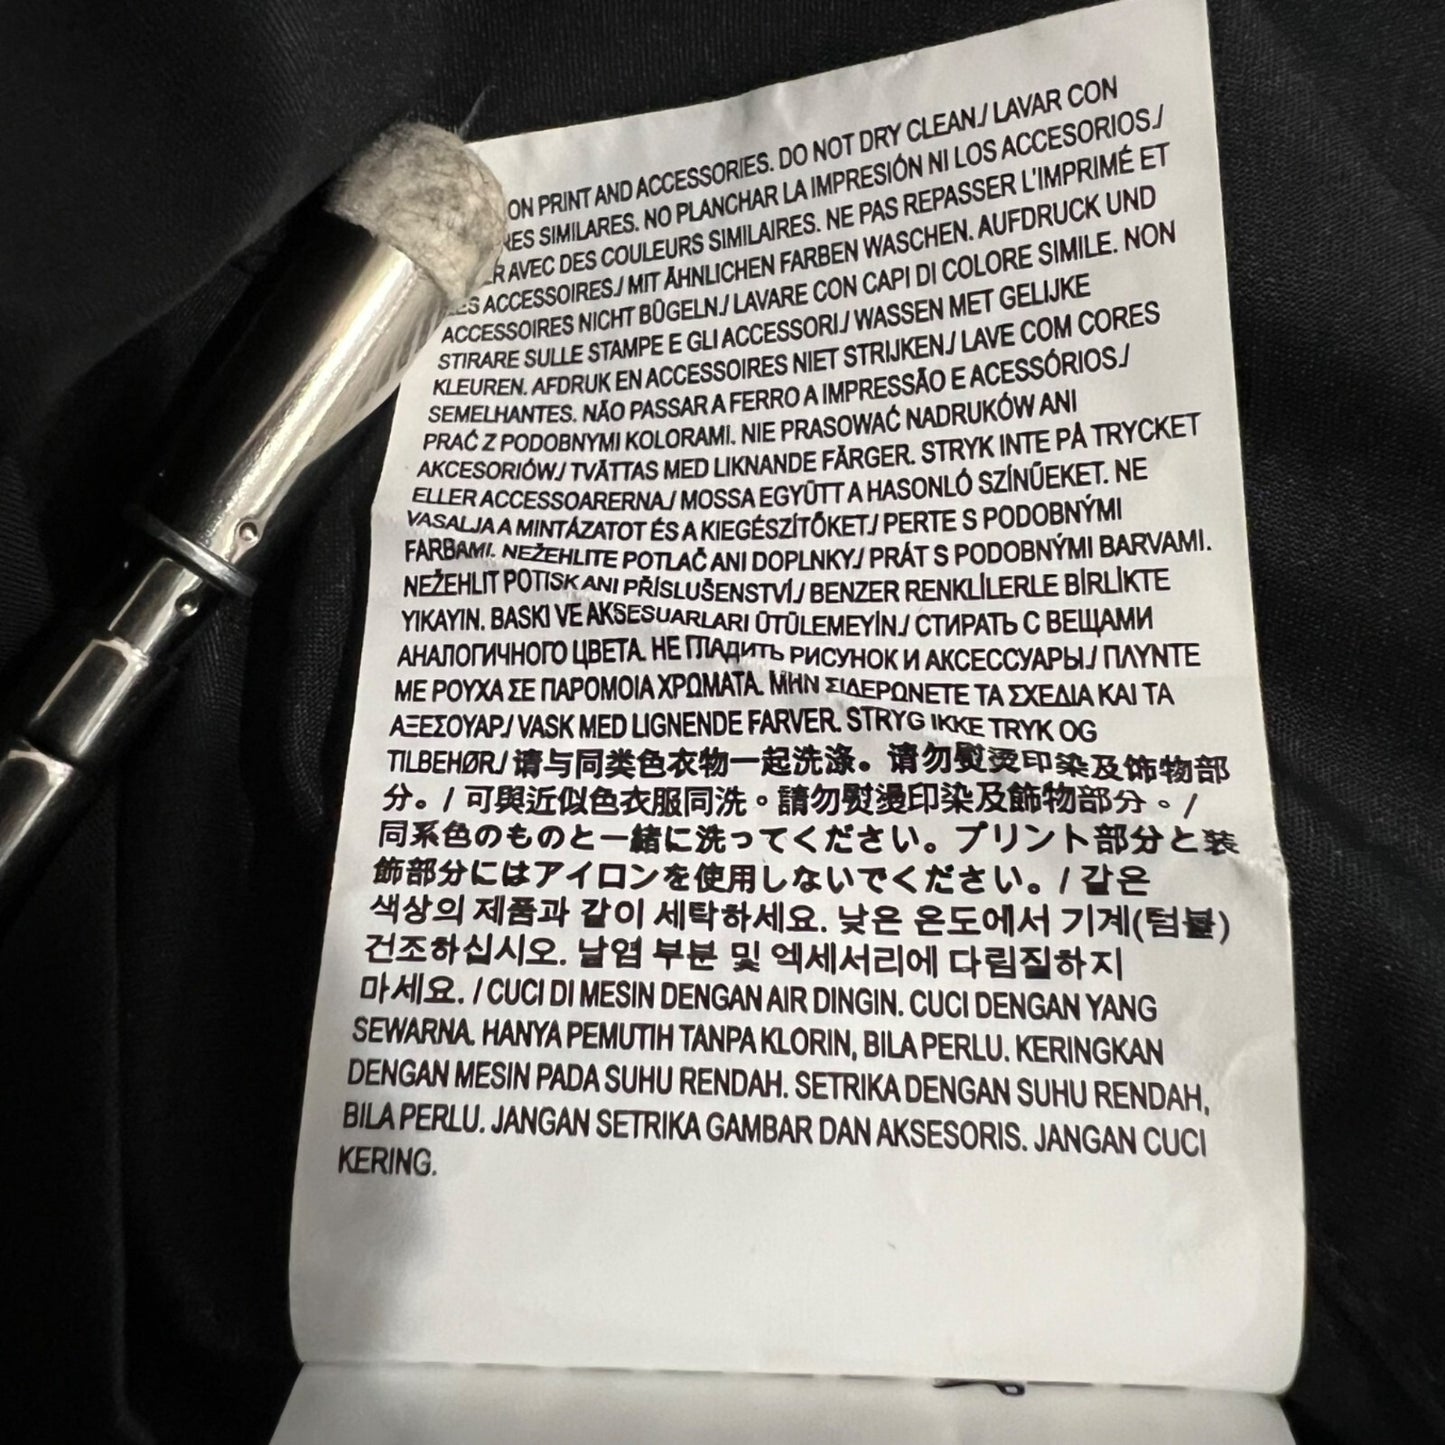 ON PRINT AND ACCESSORIES. DO NOT DRY CLEAN./ LAVAR CON
SIMILARES. NO PLANCHAR LA IMPRESIÓN NI LOS ACCESORIOS./
AVEC DES COULEURS SIMILAIRES. NE PAS REPASSER L'IMPRIMÉ ET
LES ACCESSOIRES./ MIT ÄHNLICHEN FARBEN WASCHEN. AUFDRUCK UND
ACCESSOIRES NICHT BÜGELN./ LAVARE CON CAPI DI COLORE SIMILE. NON
STIRARE SULLE STAMPE E GLI ACCESSORI./ WASSEN MET GELIJKE
KLEUREN. AFDRUK EN ACCESSOIRES NIET STRIJKEN./ LAVE COM CORES
SEMELHANTES. NÃO PASSAR A FERRO A IMPRESSÃO E ACESSÓRIOS./
PRAĆ Z PODOBNYMI KOLORAMI. NIE PRASOWAĆ NADRUKÓW ANI
AKCESORIÓW./ TVÄTTAS MED LIKNANDE FÄRGER. STRYK INTE PÅ TRYCKET
ELLER ACCESSOARERNA./ MOSSA EGYÜTT A HASONLÓ SZÍNŰEKET. NE
VASALJA A MINTÁZATOT ÉS A KIEGÉSZÍTŐKET./ PERTE S PODOBNÝMI
FARBAMI. NEŽEHLITE POTLAČ ANI DOPLNKY./ PRÁT S PODOBNÝMI BARVAMI.
NEŽEHLIT POTISK ANI PŘÍSLUŠENSTVÍ./ BENZER RENKLİLERLE BİRLİKTE
YIKAYIN. BASKI VE AKSESUARLARI ÜTÜLEMEYİN./ СТИРАТЬ С ВЕЩАМИ
АНАЛОГИЧНОГО ЦВЕТА. НЕ ГЛАДИТЬ РИСУНОК И АКСЕССУАРЫ./ ΠΛΥΝΤΕ
ΜΕ ΡΟΥΧΑ ΣΕ ΠΑΡΟΜΟΙΑ ΧΡΩΜΑΤΑ. ΜΗΝ ΣΙΔΕΡΩΝΕΤΕ ΤΑ ΣΧΕΔΙΑ ΚΑΙ ΤΑ
ΑΞΕΣΟΥΑΡ./ VASK MED LIGNENDE FARVER. STRYG IKKE TRYK OG
TILBEHØR./ 请与同类色衣物一起洗涤。请勿熨烫印染及饰物部
分。/ 可與近似色衣服同洗。請勿熨燙印染及飾物部分。/
同系色のものと一緒に洗ってください。プリント部分と装
飾部分にはアイロンを使用しないでください。/ 같은
색상의 제품과 같이 세탁하세요. 낮은 온도에서 기계(텀블)
건조하십시오. 날염 부분 및 엑세서리에 다림질하지
마세요. / CUCI DI MESIN DENGAN AIR DINGIN. CUCI DENGAN YANG
SEWARNA. HANYA PEMUTIH TANPA KLORIN, BILA PERLU. KERINGKAN
DENGAN MESIN PADA SUHU RENDAH. SETRIKA DENGAN SUHU RENDAH,
BILA PERLU. JANGAN SETRIKA GAMBAR DAN AKSESORIS. JANGAN CUCI
KERING.